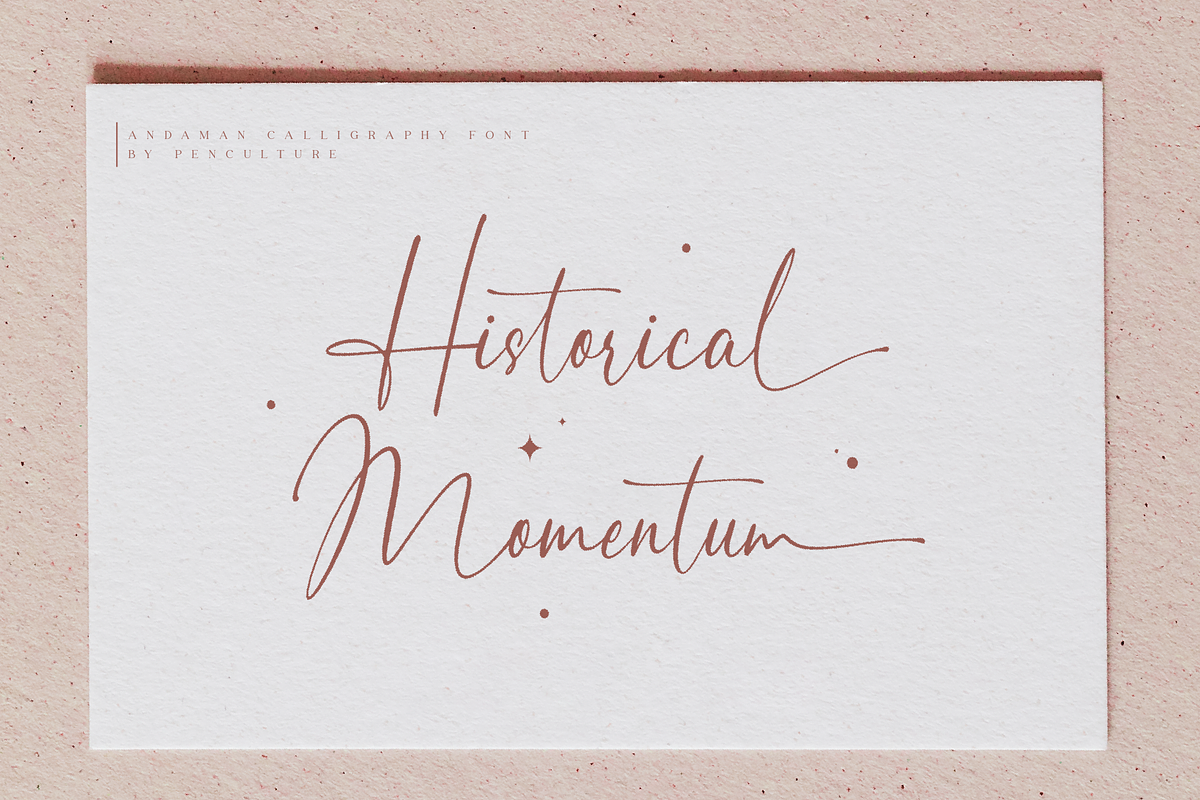 ANDAMAN CALLIGRAPHY FONT
BY PENCULTURE
Historical
Momentum